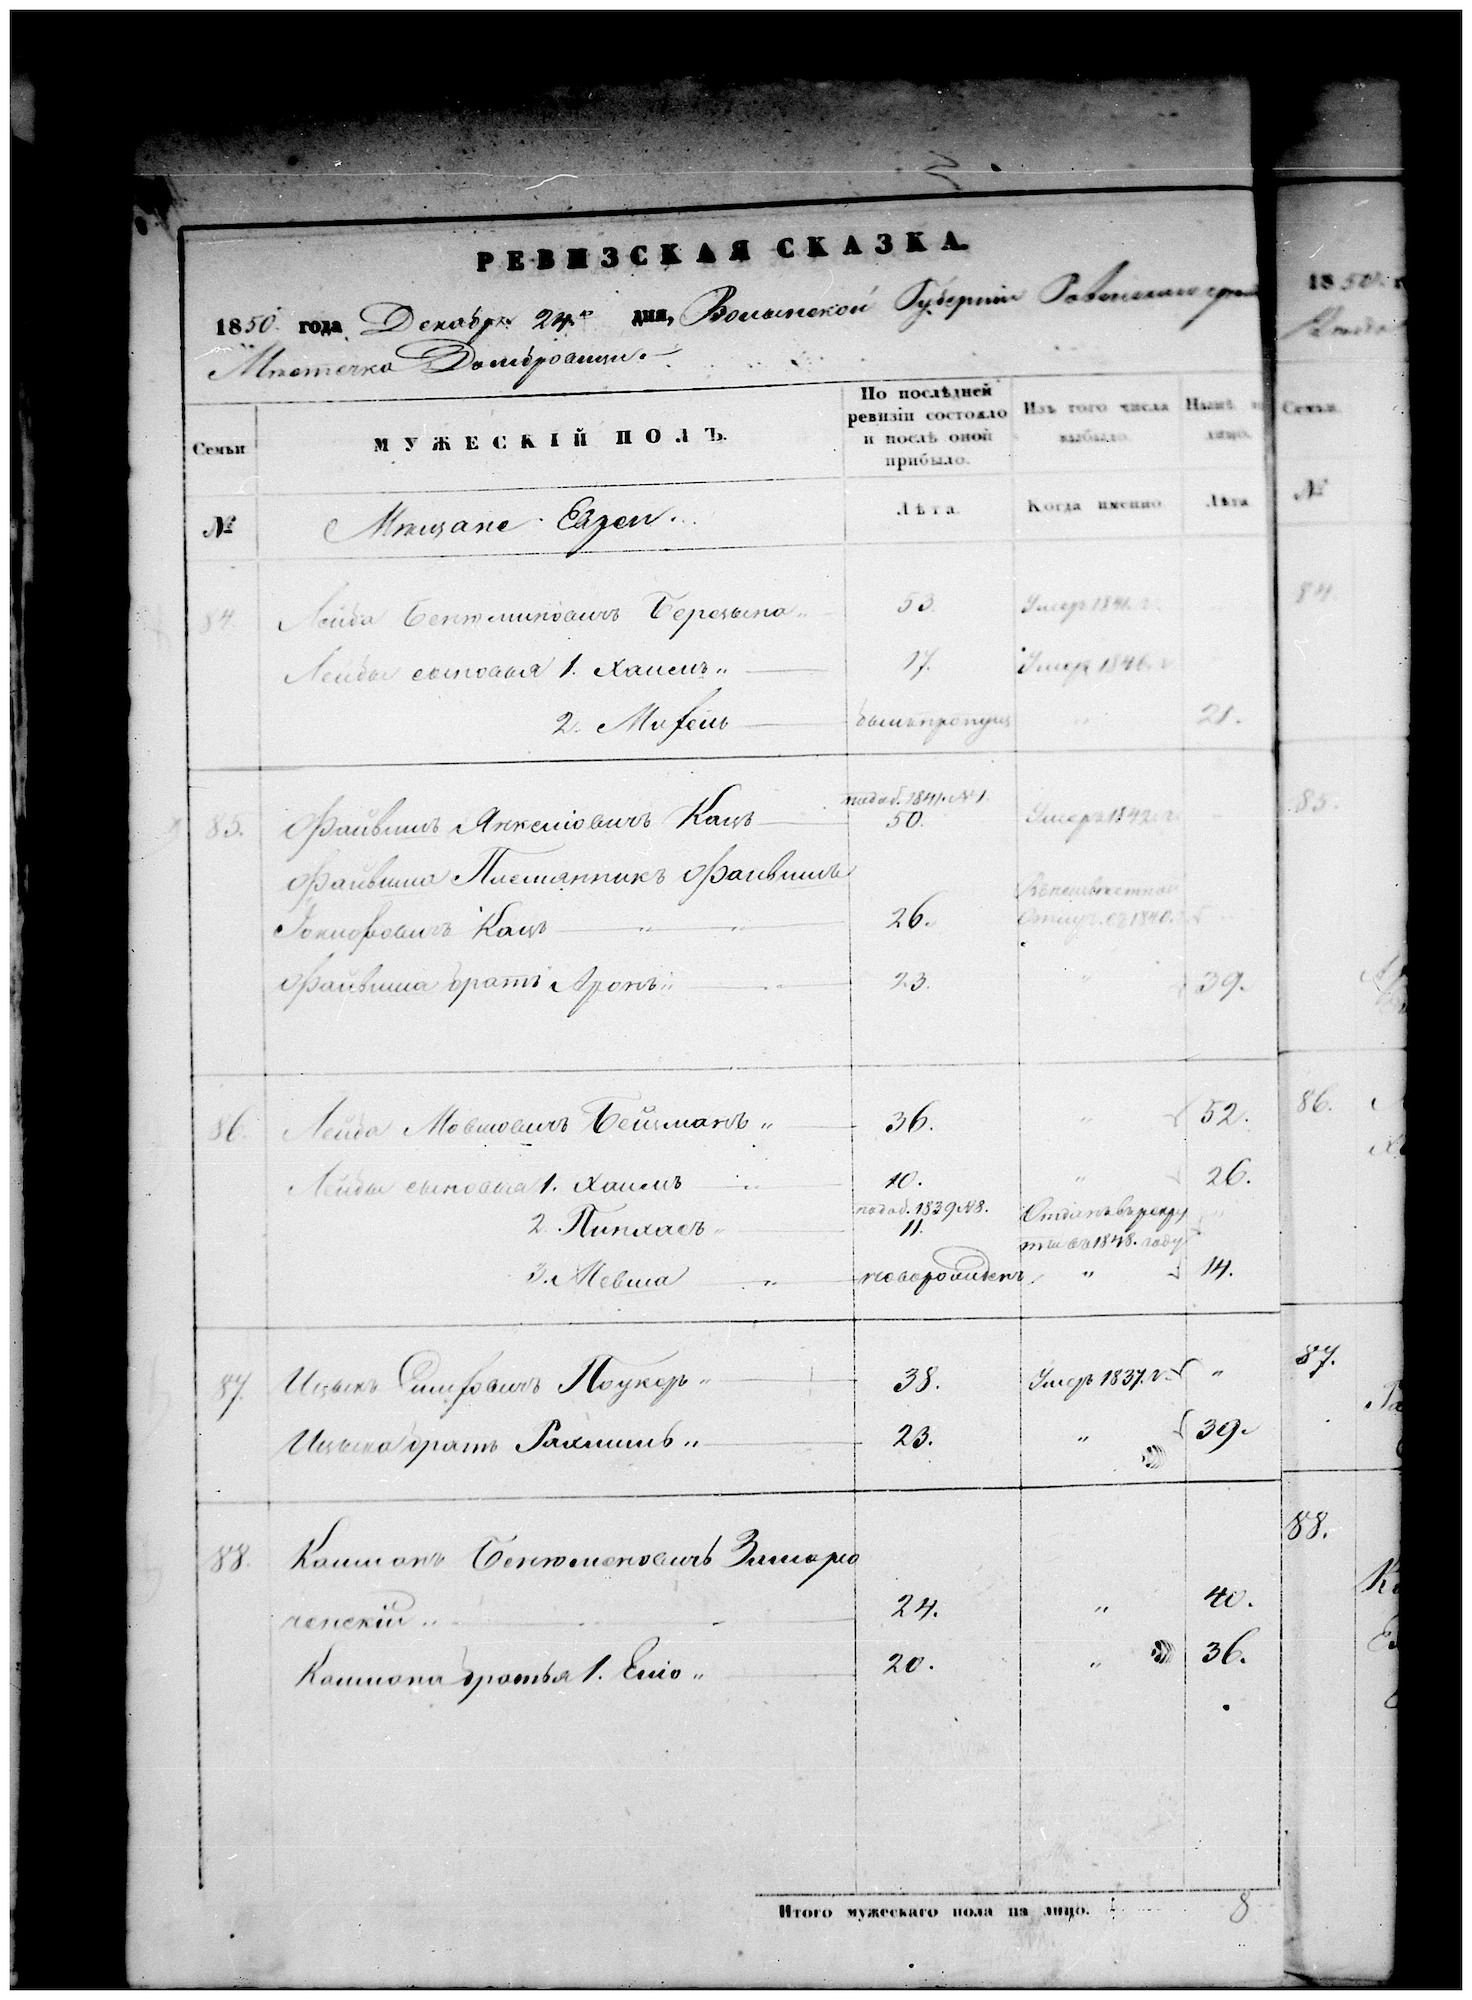 РЕВИЗСКАЯ СКАЗКА.
1850 года Декабря 24го дня, Волынской Губернии Ровенского
Мѣстечка Домбровицы.
Семьи
МУЖЕСКІЙ ПОЛЪ.
По послѣдней ревизіи состояло и послѣ оной прибыло.
Изъ того числа выбыло.
Нынѣ на лицо.
№
Мѣщане Евреи.
Лѣта.
Когда именно.
Лѣта
84. Лейба Бенюминовичъ Березына 53. Умеръ 1841. г.
Лейбы сыновья 1. Хаимъ 17. Умеръ 1846. г
2. былъ пропущ " 21.
85. Файвишъ Янкеліовичъ Кацъ по доб. 1841. № 1. 50. Умеръ 1842 г
Файвиша Племянникъ Файвишъ
Кацъ 26. Въ неизвѣстной отлуч. съ 1840. г
Файвиша братъ Аронъ 23. " 39.
86. Лейба Мовшовичъ Бейцманъ 36. " 52.
Лейбы сыновья 1. Хаимъ 10. " 26.
2. Пинхасъ по доб. 1839 № 8. 11. Отданъ въ рекру
ты въ 1848. году "
3. Мевша новорожденъ " 14.
87. Ицыкъ 38. Умеръ 1837. г. "
Ицыка братъ Рахмиль 23. " 39.
88. Калманъ Бенюменовичъ
ченскій 24. " 40.
Калмана братья 1. Еліо 20. " 36.
Итого мужескаго пола на лицо. 8
1850. г
Семьи.
№
84.
85.
86.
87.
88.